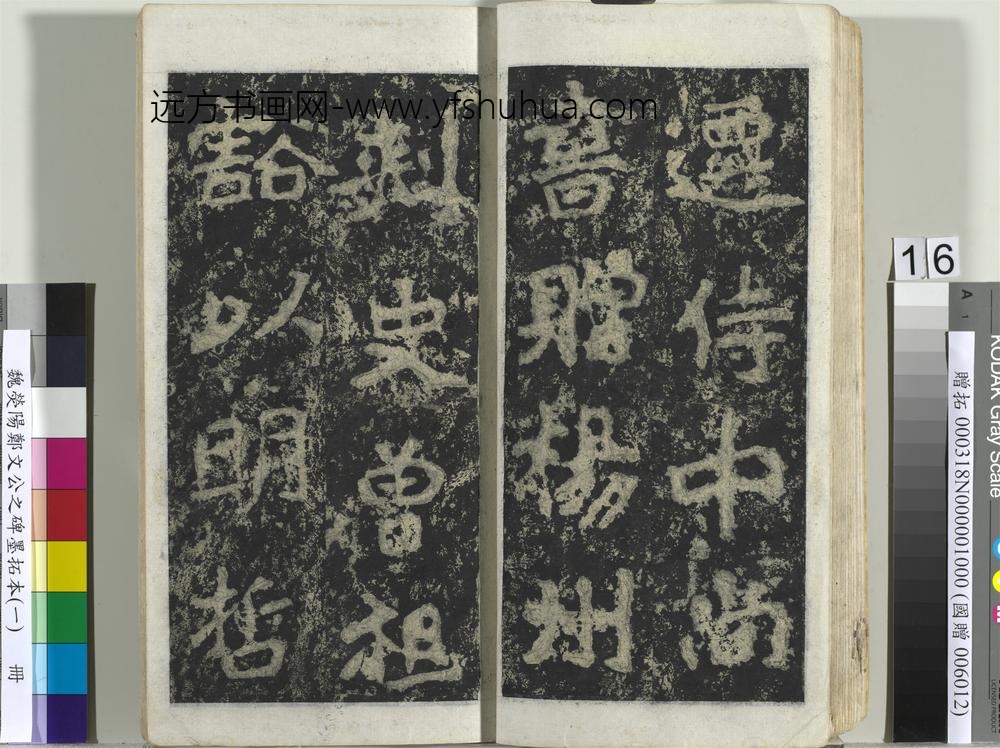 远方书画网-www.yfshuhua.com
遷侍中尚
書贈楊州
刺史曾祖
豁以明哲
16
KODAK Gray Scale
A 1
M
贈拓 000318N000001000 (國贈 006012)
魏滎陽鄭文公之碑墨拓本(一) 冊